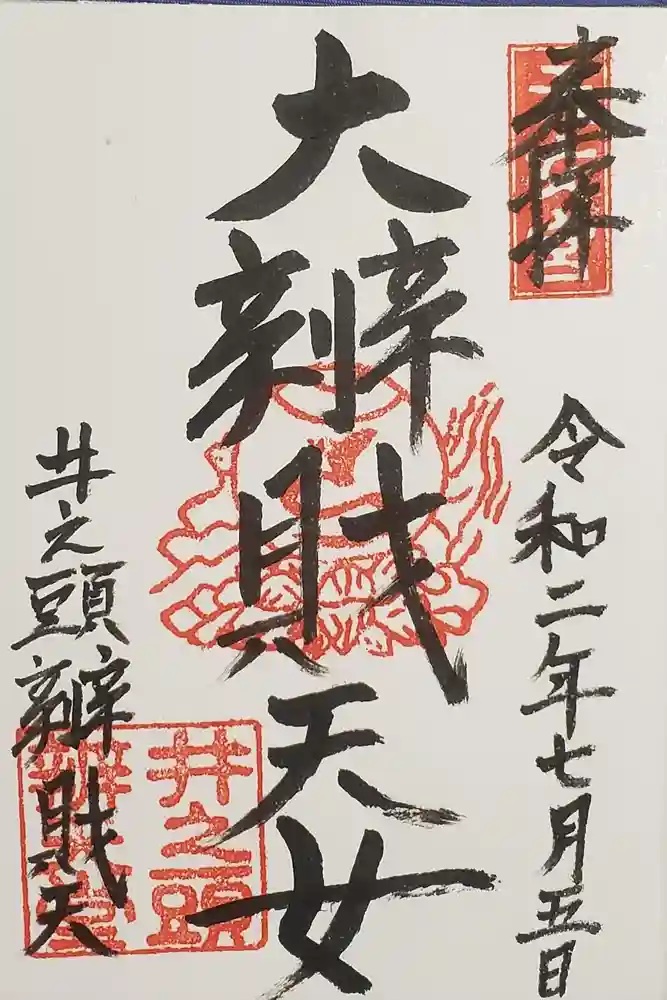 奉拝
令和二年七月五日
大辨財天女
井之頭辨財天
井之頭